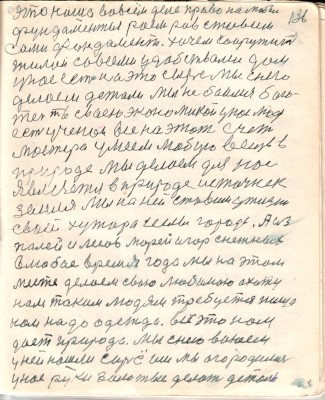 136
это наше вовсем деле право на любом
фундаменты роем ров ставим
сами фундамент. хочем соорудить
жилой со всеми удобствами дом
у нас есть на это сырье мы с него
делаем детали мы не боимся бога
техть своею экономикой у нас люд
есть ученые все на этот счет
мастера умеем любую вещь в
природе мы делаем для нас
в природе источник
земля мы на ней ставим
свой хутора села города. А из
полей и лесов морей и гор снежных
в любое время года мы на этом
месте делаем свою любимою охоту
нам таким людям требуется пища
нам надо одежда. Все это нам
дает природа. Мы с него
у ней нашли сырье и мы огородили
у нас руки золотые делать деталь